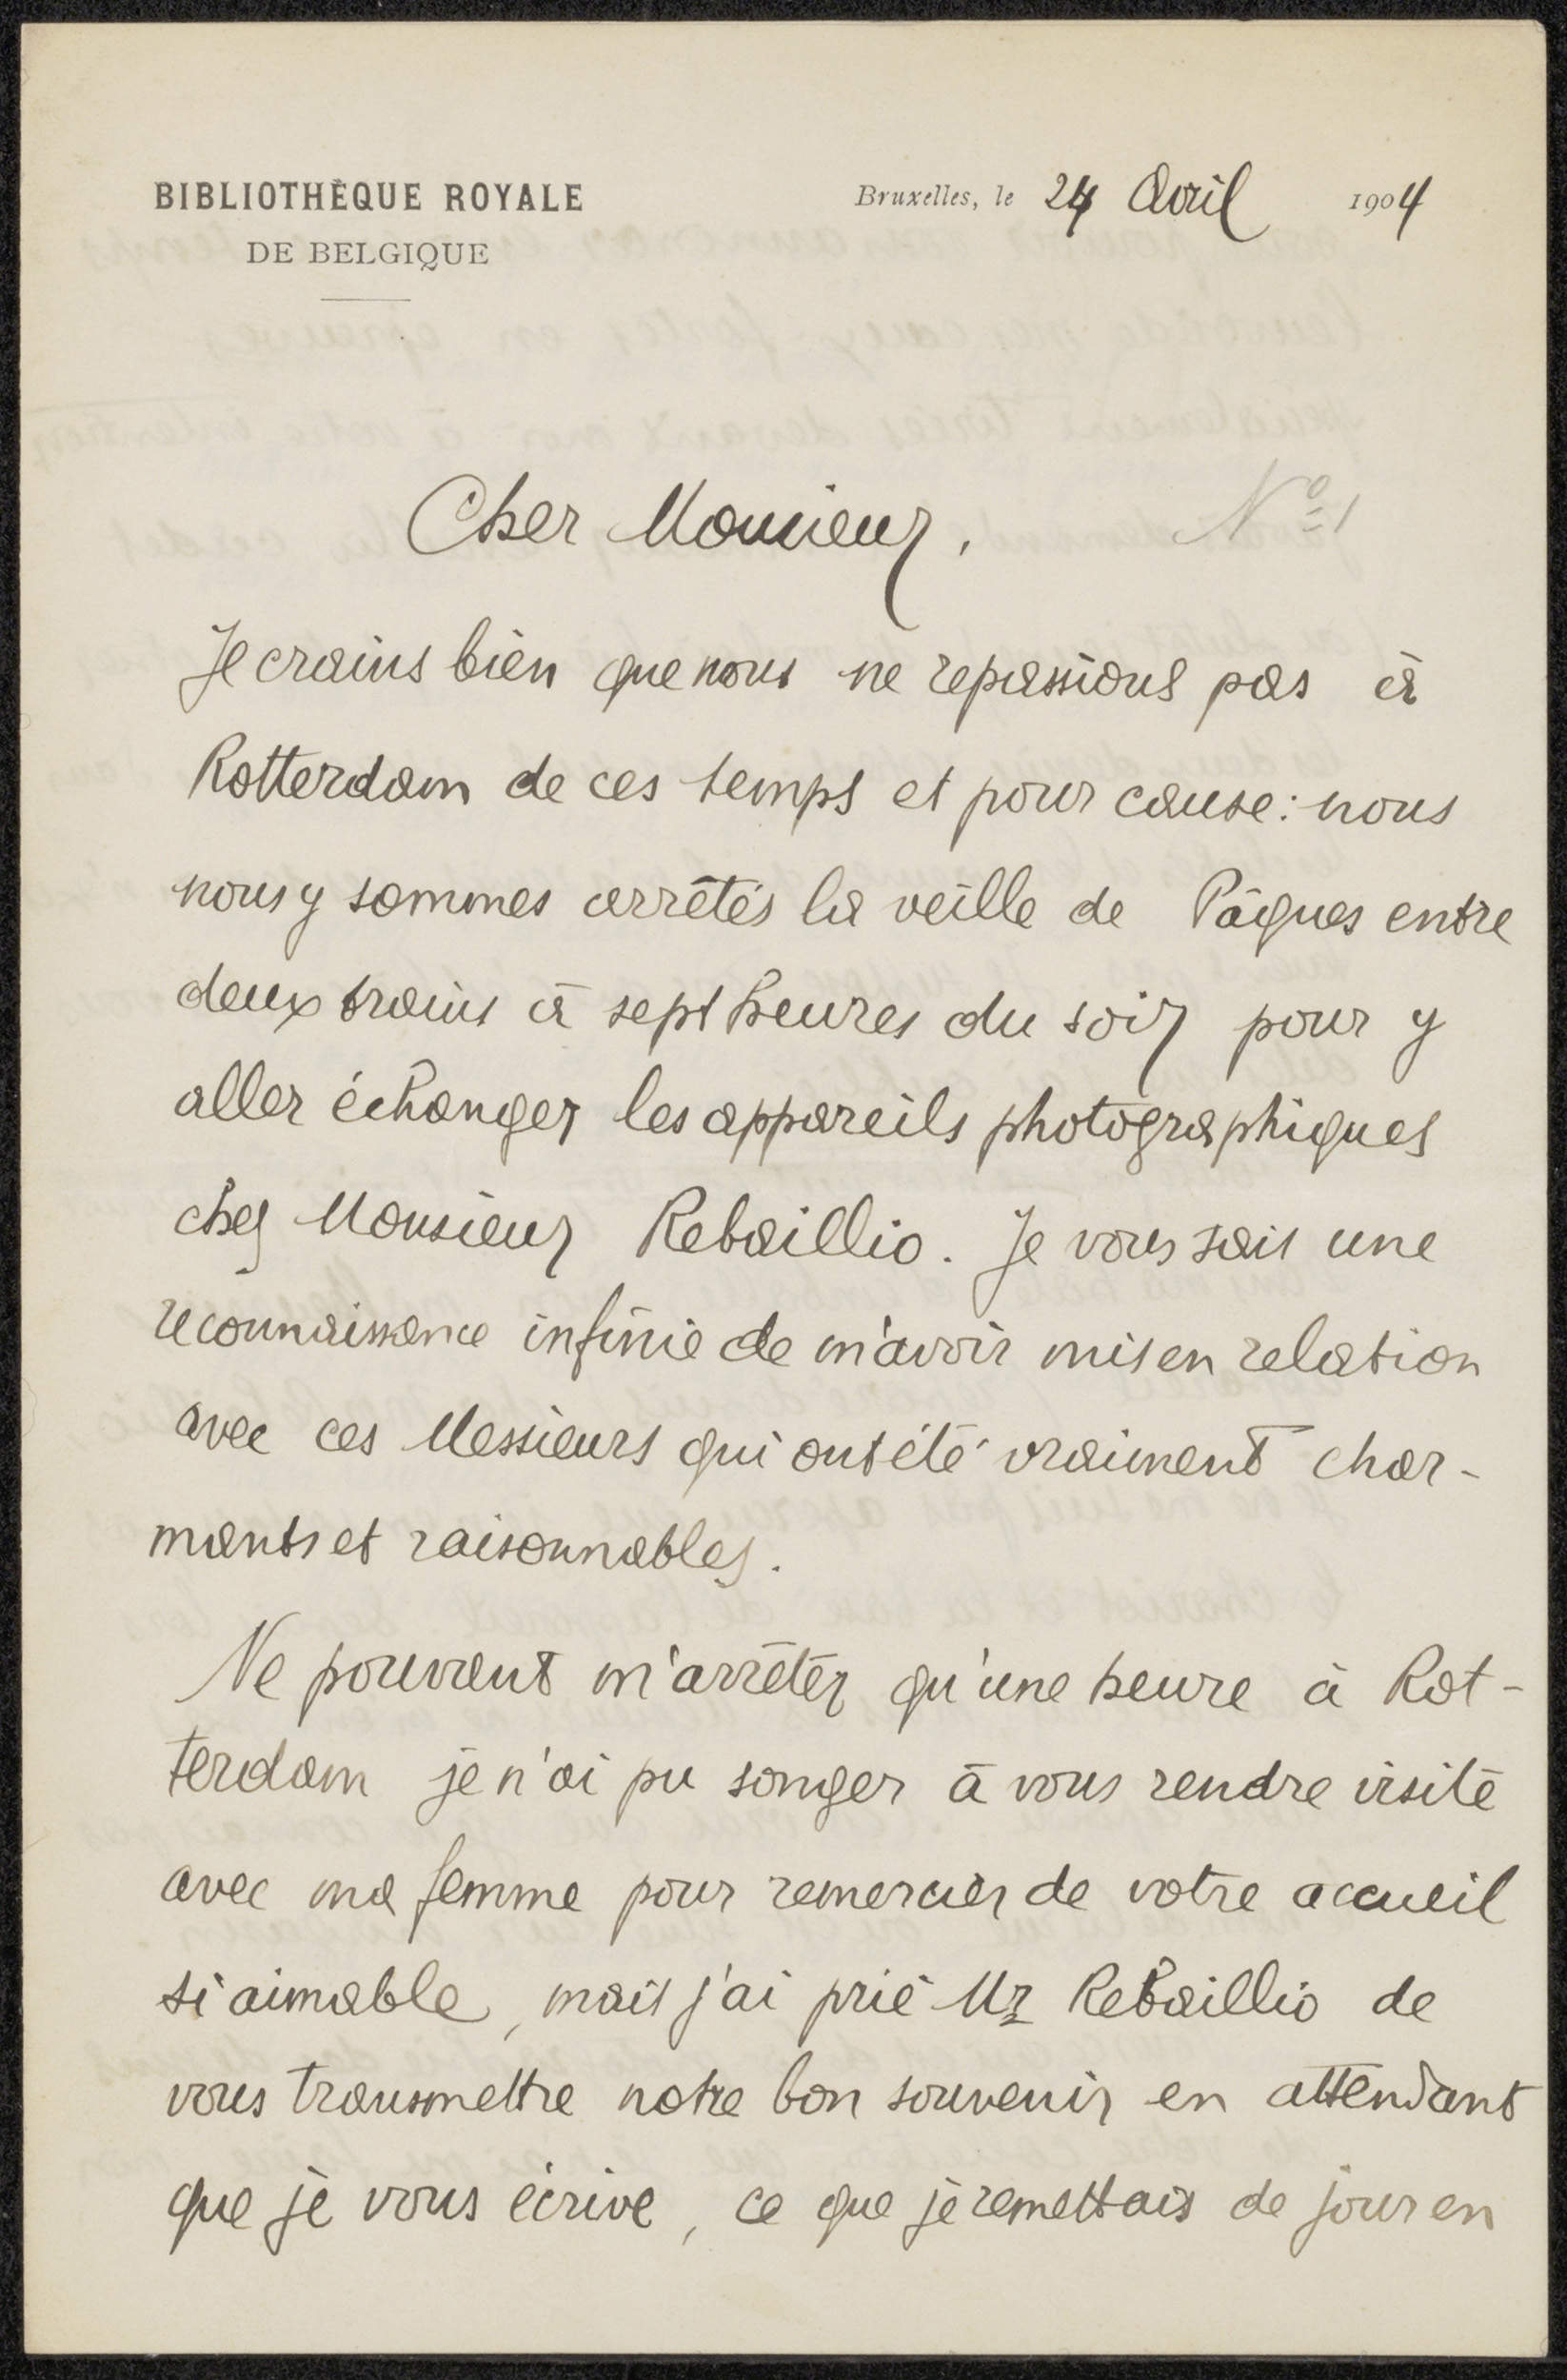 BIBLIOTHÈQUE ROYALE
DE BELGIQUE
Bruxelles, le 24 Avril 1904
Cher Monsieur,
Nº 1
Je crains bien que nous ne repassions pas à
Rotterdam de ces temps et pour cause: nous
nous y sommes arrêtés la veille de Pâques entre
deux trains à sept heures du soir pour y
aller échanger les appareils photographiques
chez Monsieur Rebaillio. Je vous sais une
reconnaissance infinie de m'avoir mis en relation
avec ces Messieurs qui ont été vraiment char-
mants et raisonnables.
Ne pouvant m'arrêter qu'une heure à Rot-
terdam je n'ai pu songer à vous rendre visite
avec ma femme pour remercier de votre accueil
si aimable, mais j'ai prié Mr Rebaillio de
vous transmettre notre bon souvenir en attendant
que je vous écrive, ce que je remettais de jour en